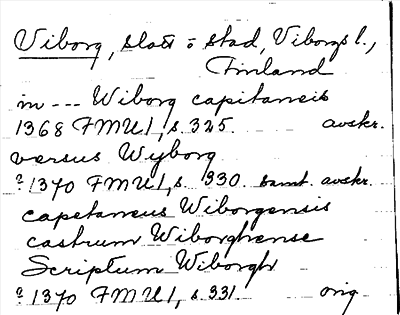 Viborg, slott o stad, Viborgs l.,
Finland
in --- Wiborg capitaneis
1368 FMU 1, s. 325. avskr.
versus Wyborg
? 1370 FMU 1, s. 330. samt. avskr.
capetaneus Wiborgensis
castrum Wiborghense
Scriptum Wiborgh
? 1370 FMU 1, s. 331. orig